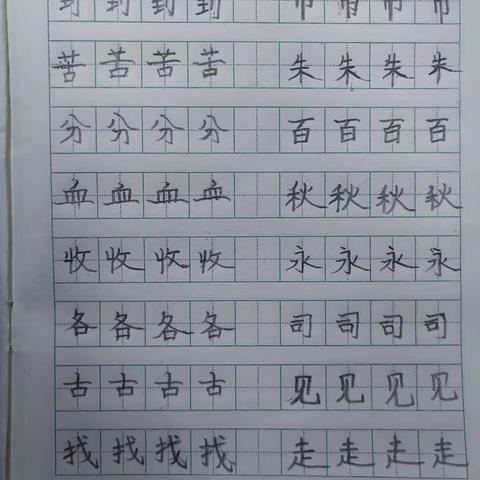 苦苦苦苦 朱朱朱朱
分分分分 百百百百
血血血血 秋秋秋秋
收收收收 永永永永
各各各各 司司司司
古古古古 见见见见
找找找找 走走走走